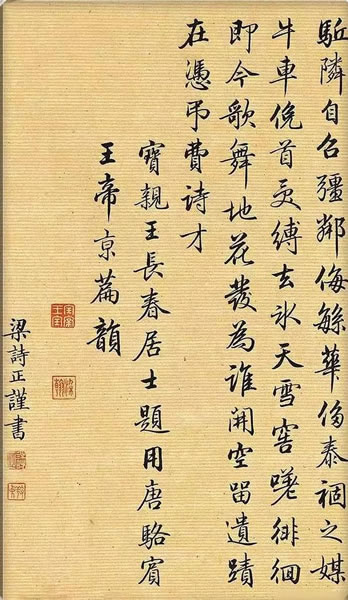 隣自召彊鄰侮緐華侈泰禍之媒
牛車俛首受縛去氷天雪窖嗟徘徊
即今歌舞地花發為誰開空留遺蹟
在憑弔費詩才
寶親王長春居士題用唐駱賓
王帝京篇韻
梁詩正謹書